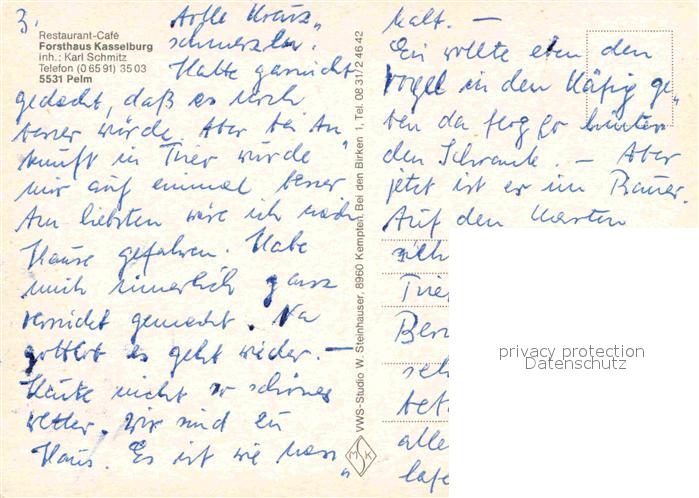 3.
tolle Kreuz„
schmerzen.
Hatte garnicht
Restaurant-Café
Forsthaus Kasselburg
inh.: Karl Schmitz
Telefon (0 65 91) 35 03
5531 Pelm
gedacht, daß es noch
besser würde. Aber bei An„
kunft in Trier wurde
mir auf einmal besser.
Am liebsten wäre ich nach
Hause gefahren. Habe
mich innerlich ganz
verrückt gemacht. Na
gottlob es geht wieder. —
Heute nicht so schönes
Wetter, wir sind zu
Haus. Es ist wie nass„
VWS-Studio W. Steinhauser, 8960 Kempten, Bei den Birken 1, Tel. 08 31/2 46 42
M S K
kalt. —
Ein wollte eben den
Vogel in den Käfig ge„
ben da flog er hinter
den Schrank. — Aber
jetzt ist er im Bauer.
Auf den Karten
sich
Trier
Ber
seh
bet
alle
privacy protection
Datenschutz